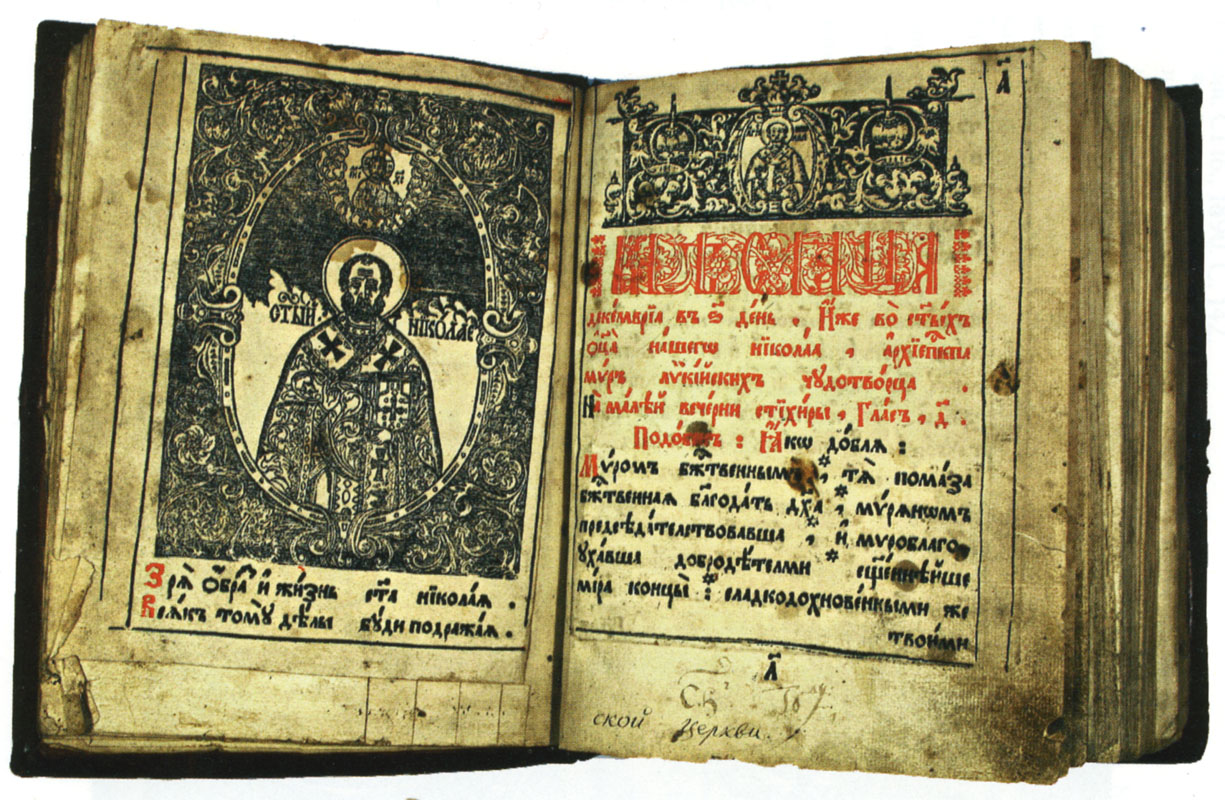 СТЫЙ НІКОЛАЕ
Зрѧ̀ ѻ҆́бра и҆ жи́знь ст҃а нїкола́ѧ .
Всѧ́къ томꙋ̀ дѣ́лы бꙋ́ди подража́ѧ .
а҃
Мⷭ҇цъ
декемврі́а въ ѕ҃ де́нь . И҆́же во ст҃ы́хъ
ѻ҆ц҃а̀ на́шегѡ нїкола́а , а҆рхїепⷭ҇кпа
мѵ́ръ лѷкі́йскихъ чꙋдотво́рца .
На ма́лѣй вече́рни стїхи́ры , гла́съ , д҃ .
Подо́бенъ : Ꙗ҆́кѡ до́блѧ :
Мѵ́ромъ бж҃твеннымъ , тѧ̀ пома́за
бж҃твеннаѧ блгода́ть дх҃а , мѵ́рѧнѡмъ
предсѣда́телствовавша , и҆ мѵроблаго
ꙋха́вша добродѣ́телми сщ҃е́ннѣйше
мі́ра концы̀ : сладкодохнове́нными же
твои́ми
а҃
ской церкви.